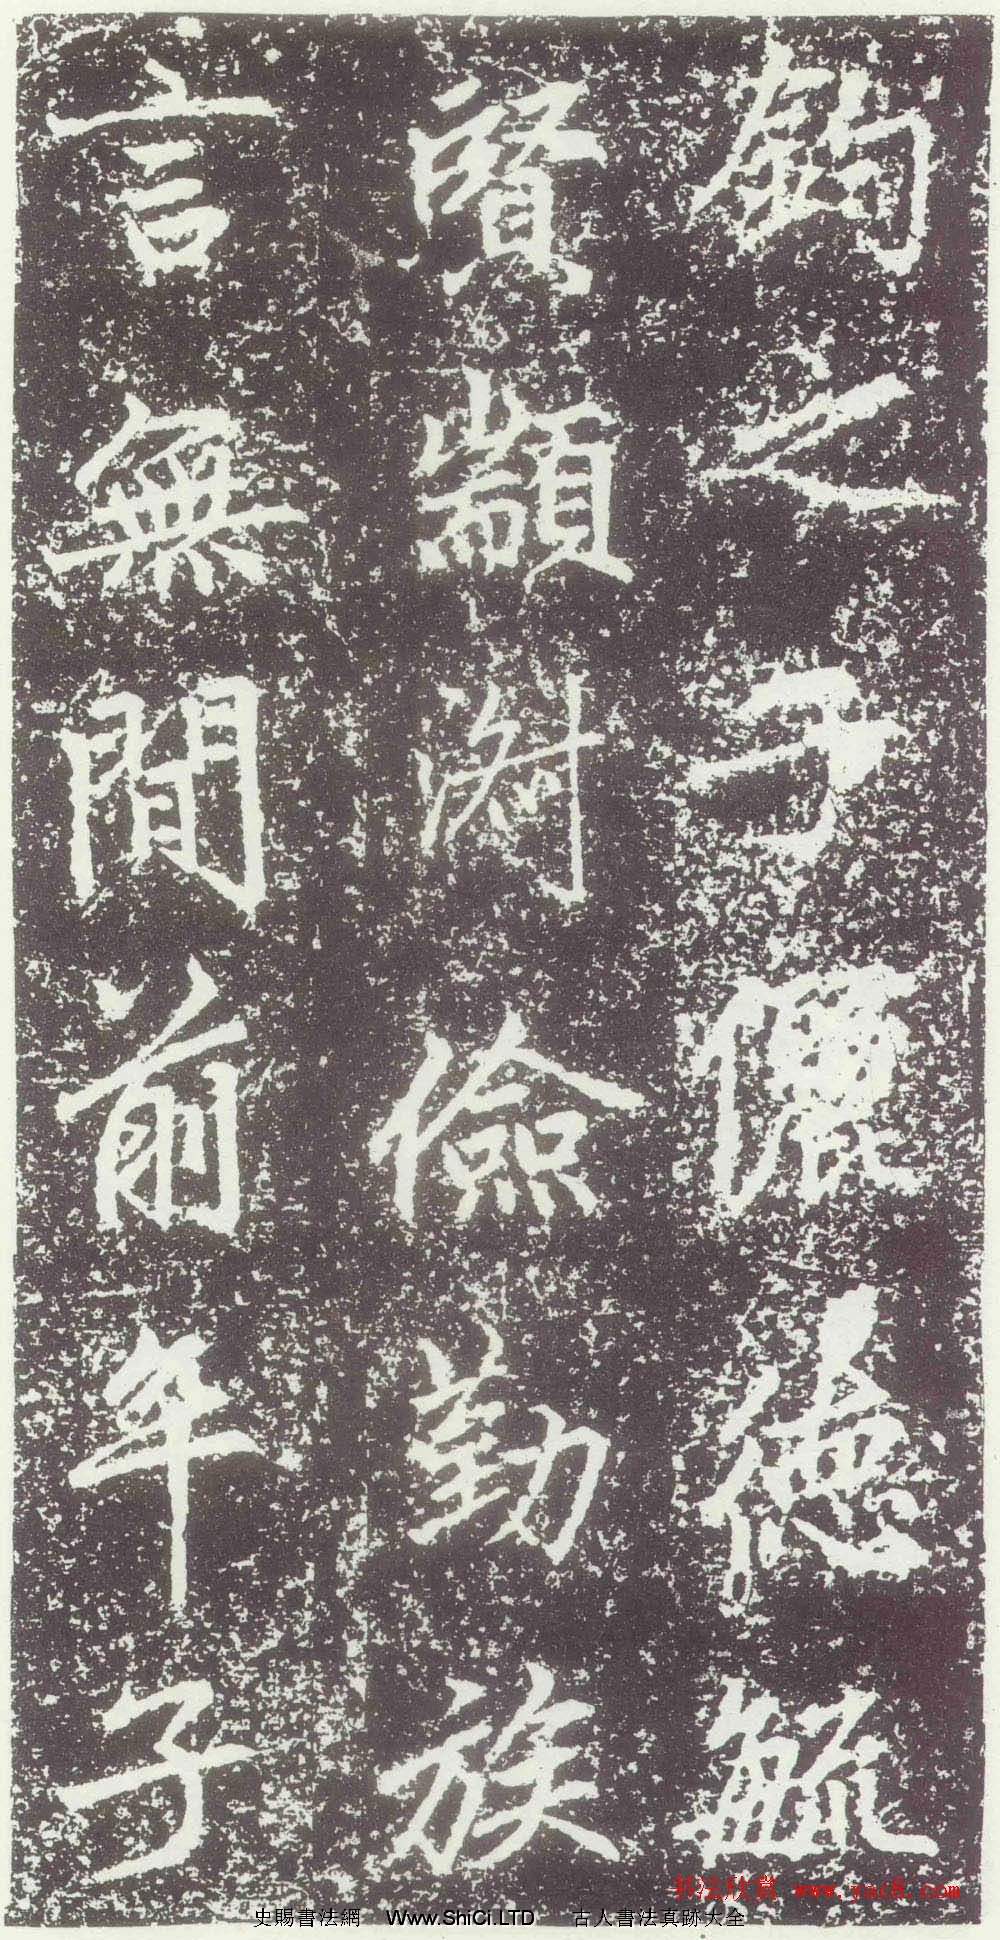 鈞之子儷德毓
賢顓儉勤族
言無間前年子
书法欣赏 www.yac8.com
史賜書法網 Www.ShiCi.LTD 古人書法真跡大全